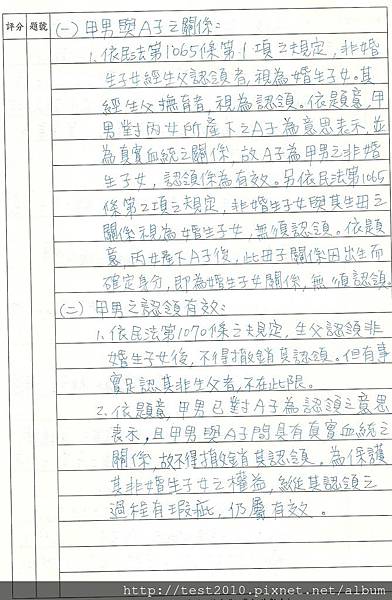 評分 題號
(一) 甲男與A子之關係：
1. 依民法第1065條第1項之規定，非婚
生子女經生父認領者，視為婚生子女。其
經生父撫育者，視為認領。依題意，甲
男對丙女所產下之A子為意思表示，並
為真實血統之關係，故A子為甲男之非婚
生子女，認領係為有效。另依民法第1065
條第2項之規定，非婚生子女與其生母之
關係視為婚生子女，無須認領。依題
意，丙女產下A子後，此母子關係因出生而
確定身分，即為婚生子女關係，無須認領。
(二) 甲男之認領有效：
1. 依民法第1070條之規定，生父認領非
婚生子女後，不得撤銷其認領。但有事
實足認其非生父者，不在此限。
2. 依題意，甲男已對A子為認領之意思
表示，且甲男與A子間具有真實血統之
關係，故不得撤銷其認領。為保護
其非婚生子女之權益，縱其認領之
過程有瑕疵，仍屬有效。
http://test2010.pixnet.net/album